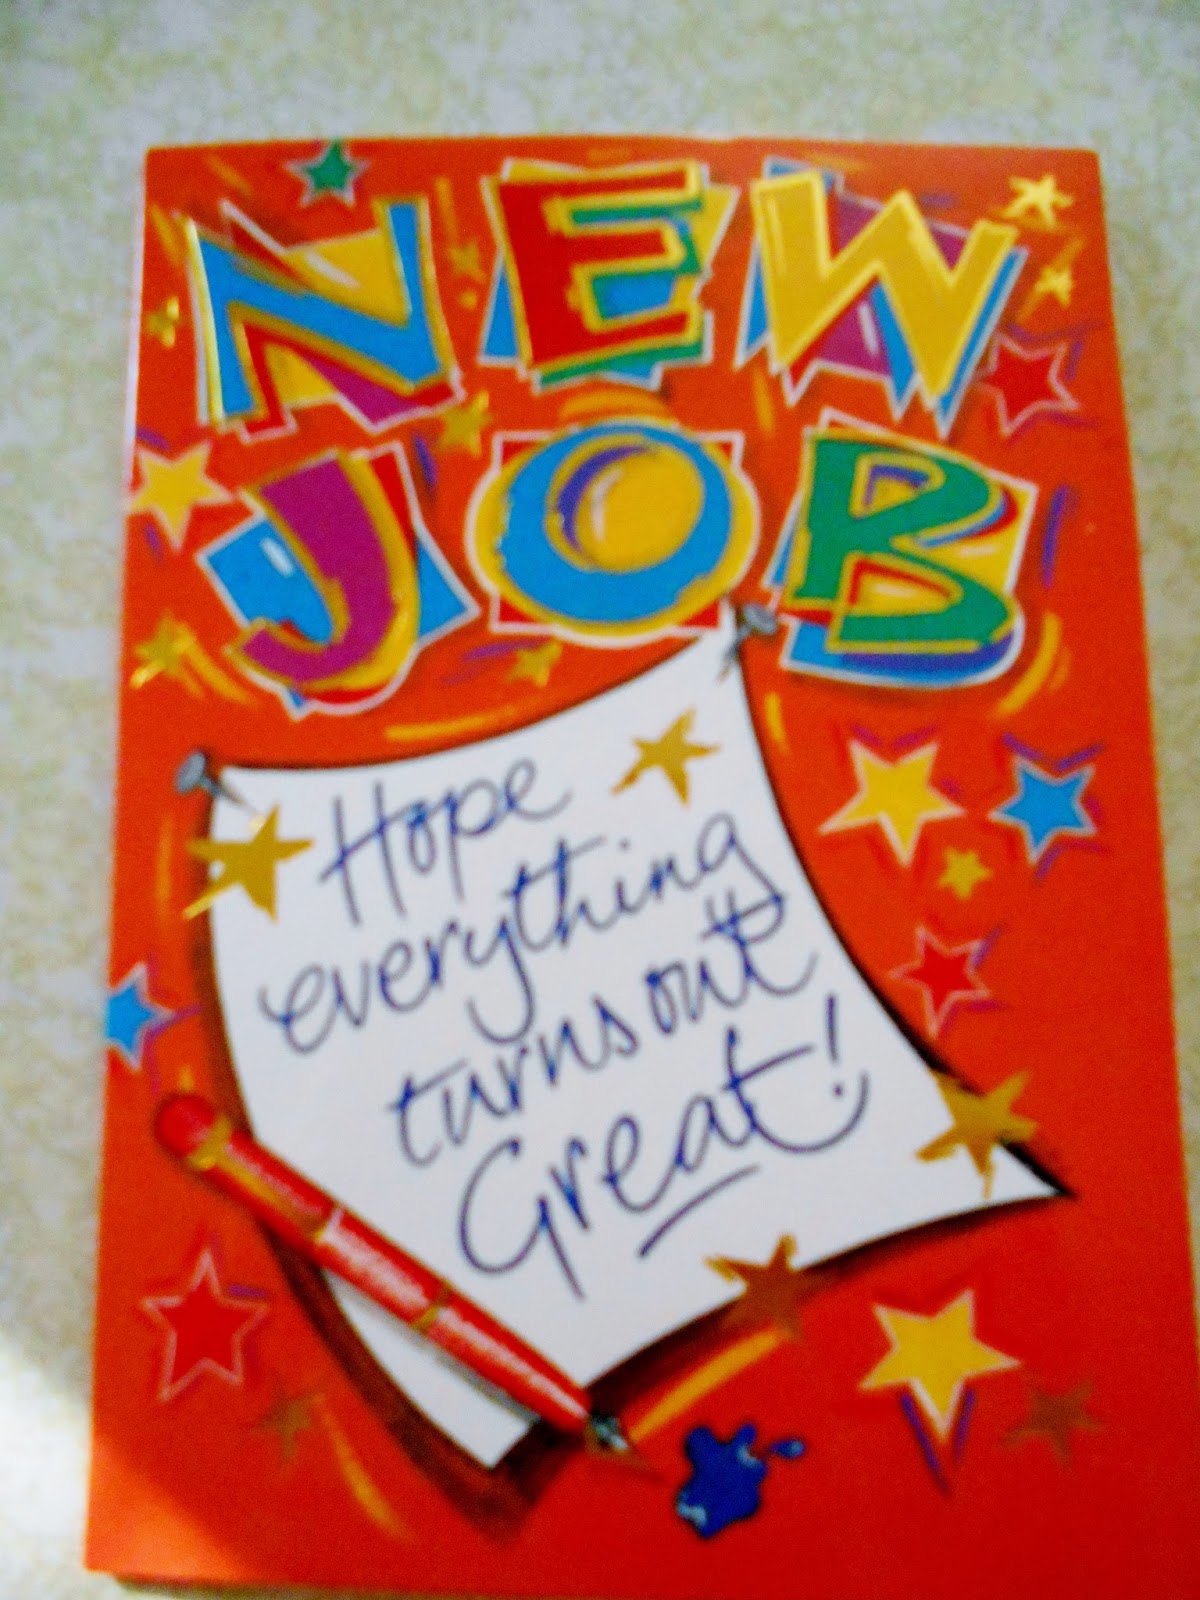 NEW
JOB
Hope
everything
turns out
Great!